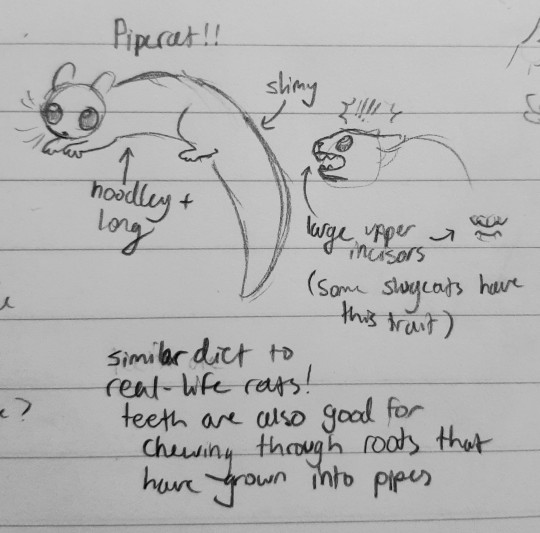 Pipecat!!
slimy
noodley +
long
large upper
incisors
(some slugcats have
this trait)
similar diet to
real-life rats!
teeth are also good for
chewing through roots that
have grown into pipes